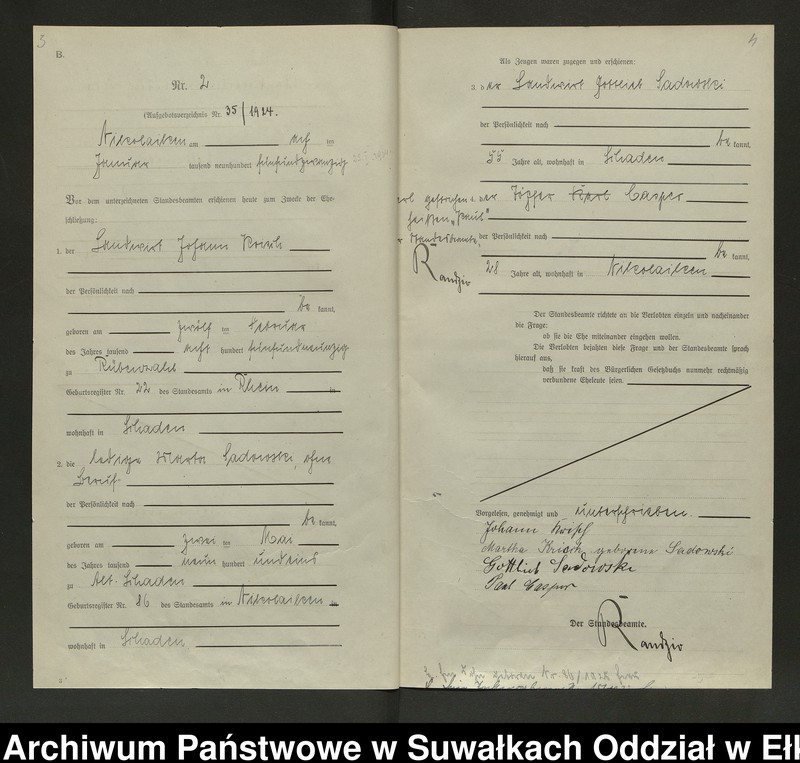 3
B.
Nr. 2
(Aufgebotsverzeichnis Nr. 35/1924.
Nikolaiken am acht im
Januar tausend neunhundert fünfundzwanzig
Vor dem unterzeichneten Standesbeamten erschienen heute zum Zwecke der Ehe-
schließung:
1. der Landwirt Johann
der Persönlichkeit nach
be kannt,
geboren am zwölf im Februar
des Jahres tausend acht hundert fünfundneunzig
zu Rübenzahl
Geburtsregister Nr. 22 des Standesamts in Rhein in
wohnhaft in Schaden
2. die ledige Marta Sadowski, ohne
Beruf
der Persönlichkeit nach
be kannt,
geboren am zwei im Mai
des Jahres tausend neun hundert undeins
zu Alt-Schaden
Geburtsregister Nr. 86 des Standesamts in Nikolaiken in
wohnhaft in Schaden
4
Als Zeugen waren zugegen und erschienen:
3. der Landwirt Gottlieb Sadowski
der Persönlichkeit nach
be kannt,
55 Jahre alt, wohnhaft in Schaden
4. der Töpfer Karl Casper
gestrichen
heißen "Paul"
Standesbeamte,
Randzio
der Persönlichkeit nach
be kannt,
28 Jahre alt, wohnhaft in Nikolaiken
Der Standesbeamte richtete an die Verlobten einzeln und nacheinander
die Frage:
ob sie die Ehe miteinander eingehen wollen.
Die Verlobten bejahten diese Frage und der Standesbeamte sprach
hierauf aus,
daß sie kraft des Bürgerlichen Gesetzbuchs nunmehr rechtmäßig
verbundene Eheleute seien.
Vorgelesen, genehmigt und unterschrieben.
Johann
Martha geborene Sadowski
Gottlieb Sadowski
Paul Casper
Der Standesbeamte.
Randzio
Archiwum Państwowe w Suwałkach Oddział w Ełk